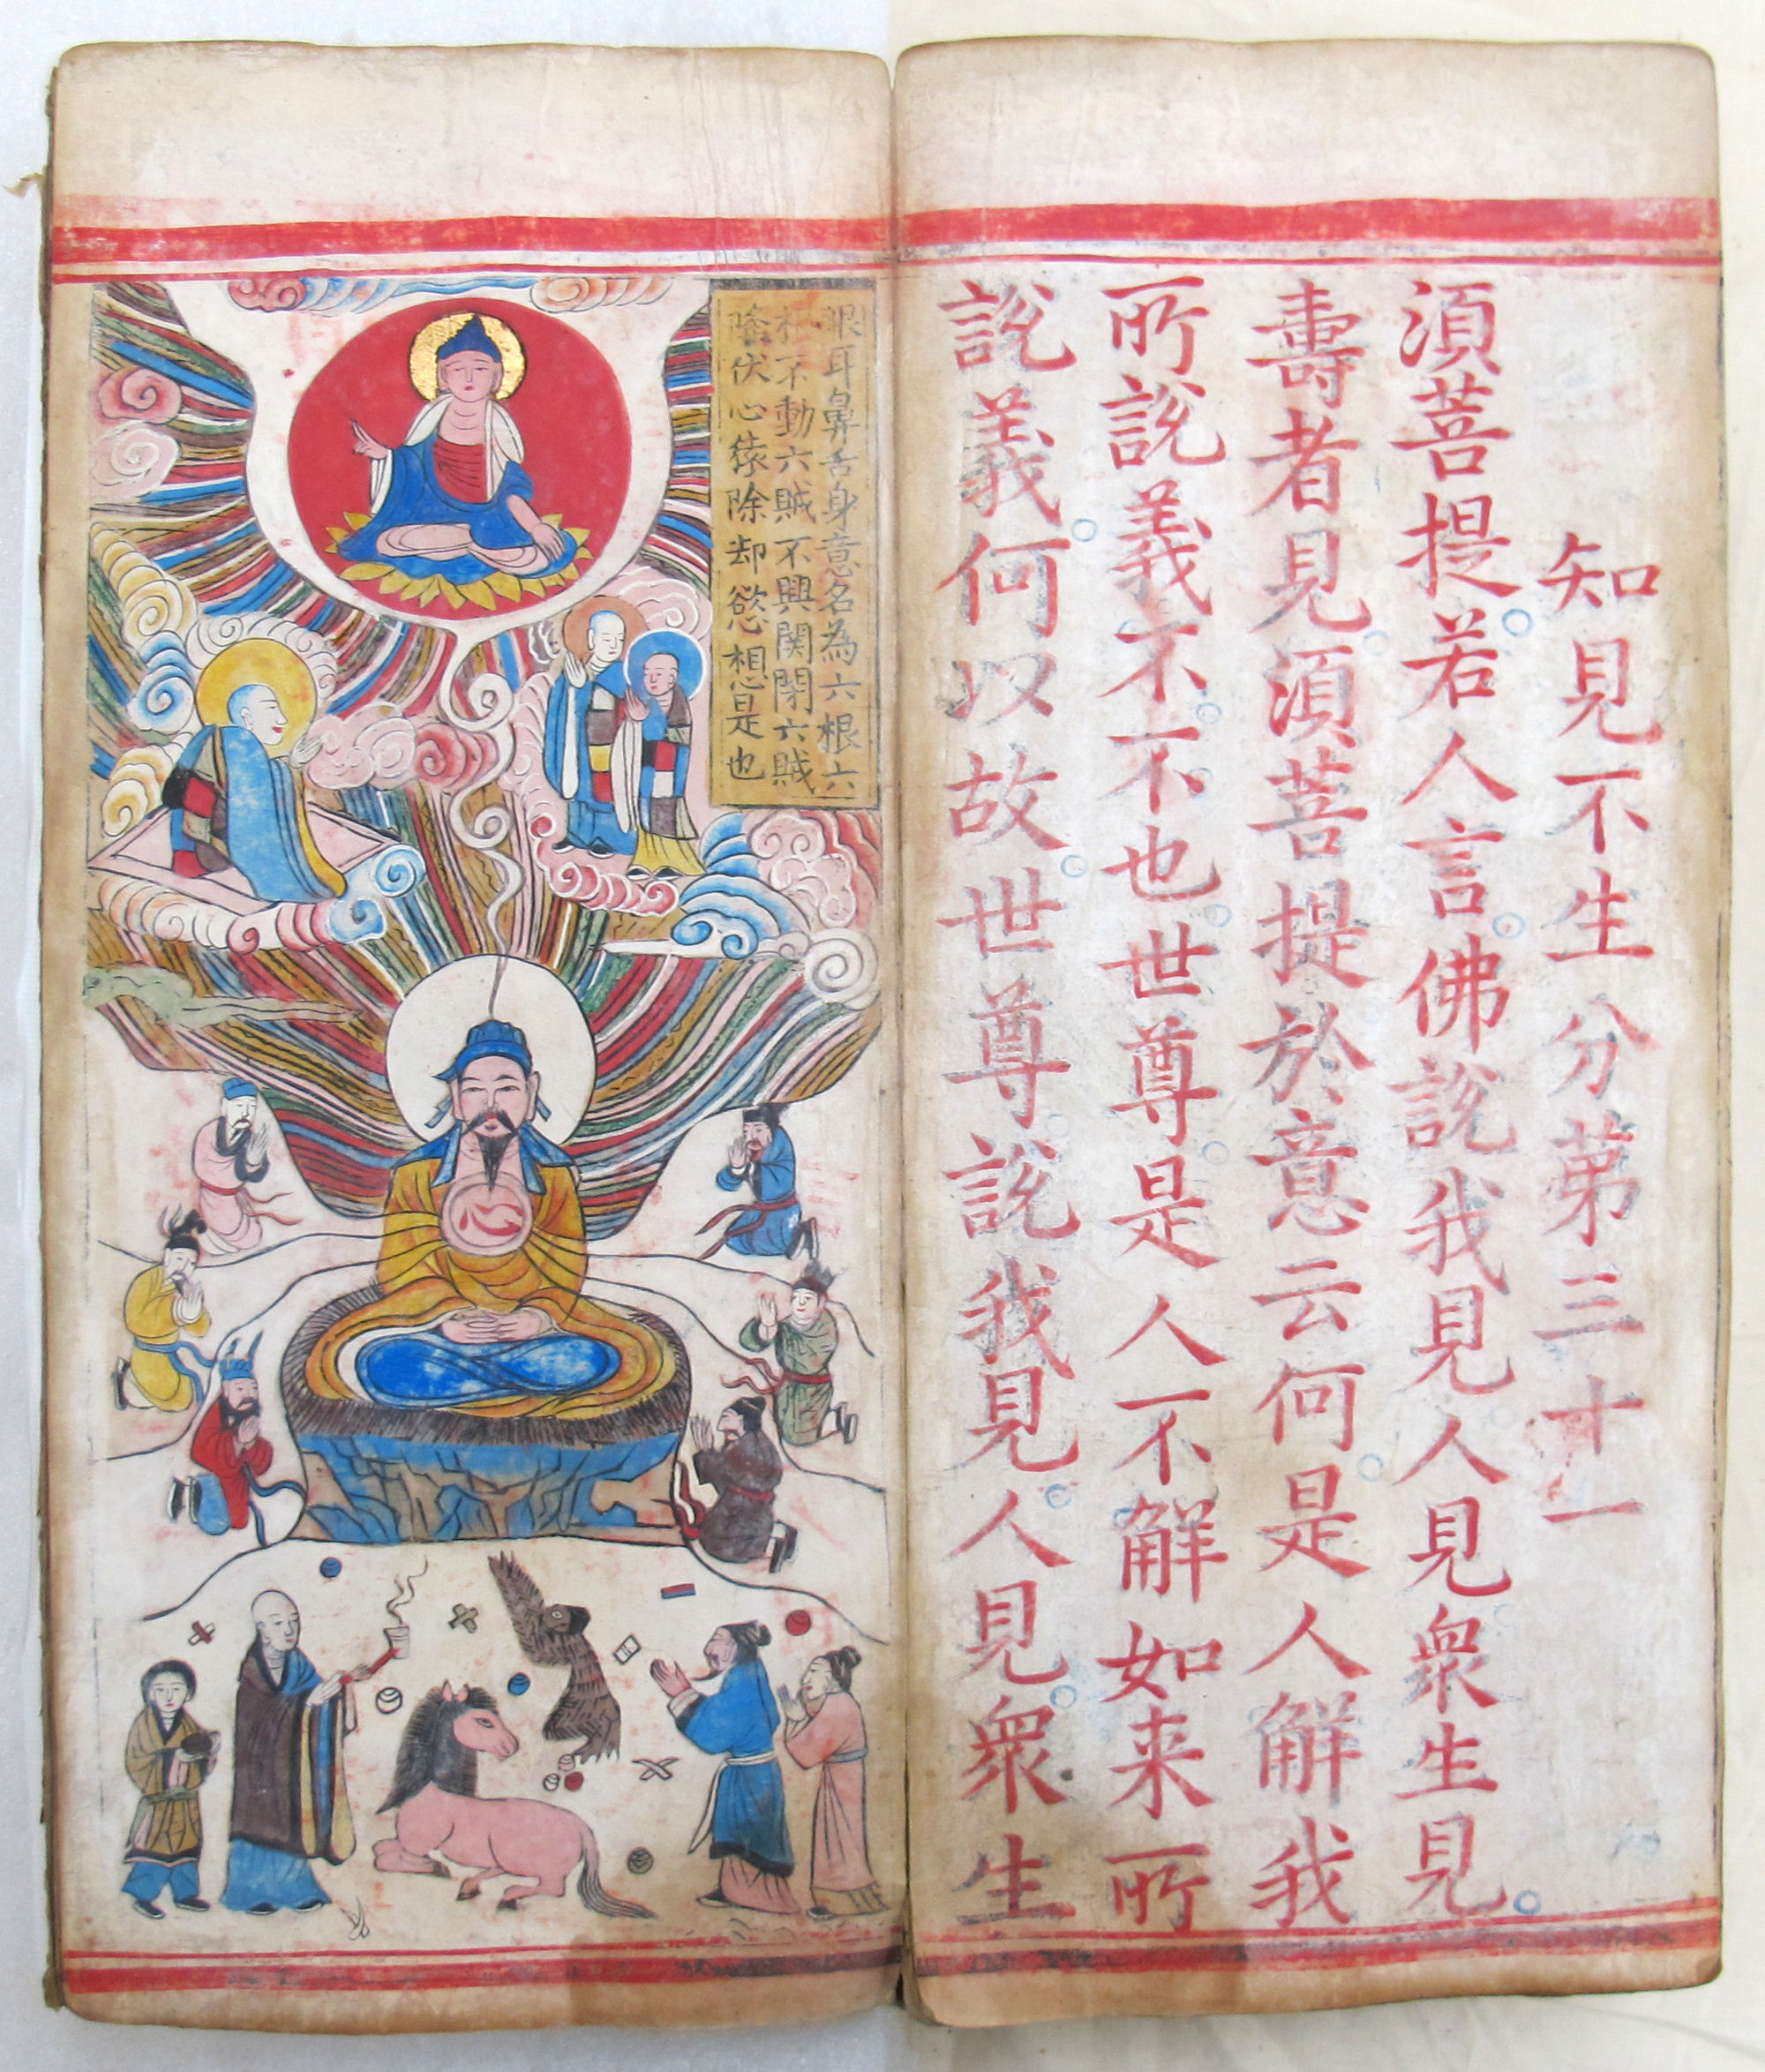 知見不生分第三十一
須菩提若人言佛說我見人見衆生見
壽者見須菩提於意云何是人解我
所說義不不也世尊是人不解如来所
說義何以故世尊說我見人見衆生
眼耳鼻舌身意名為六根六
根不動六賊不興関閉六賊
降伏心猿除却慾想是也
心